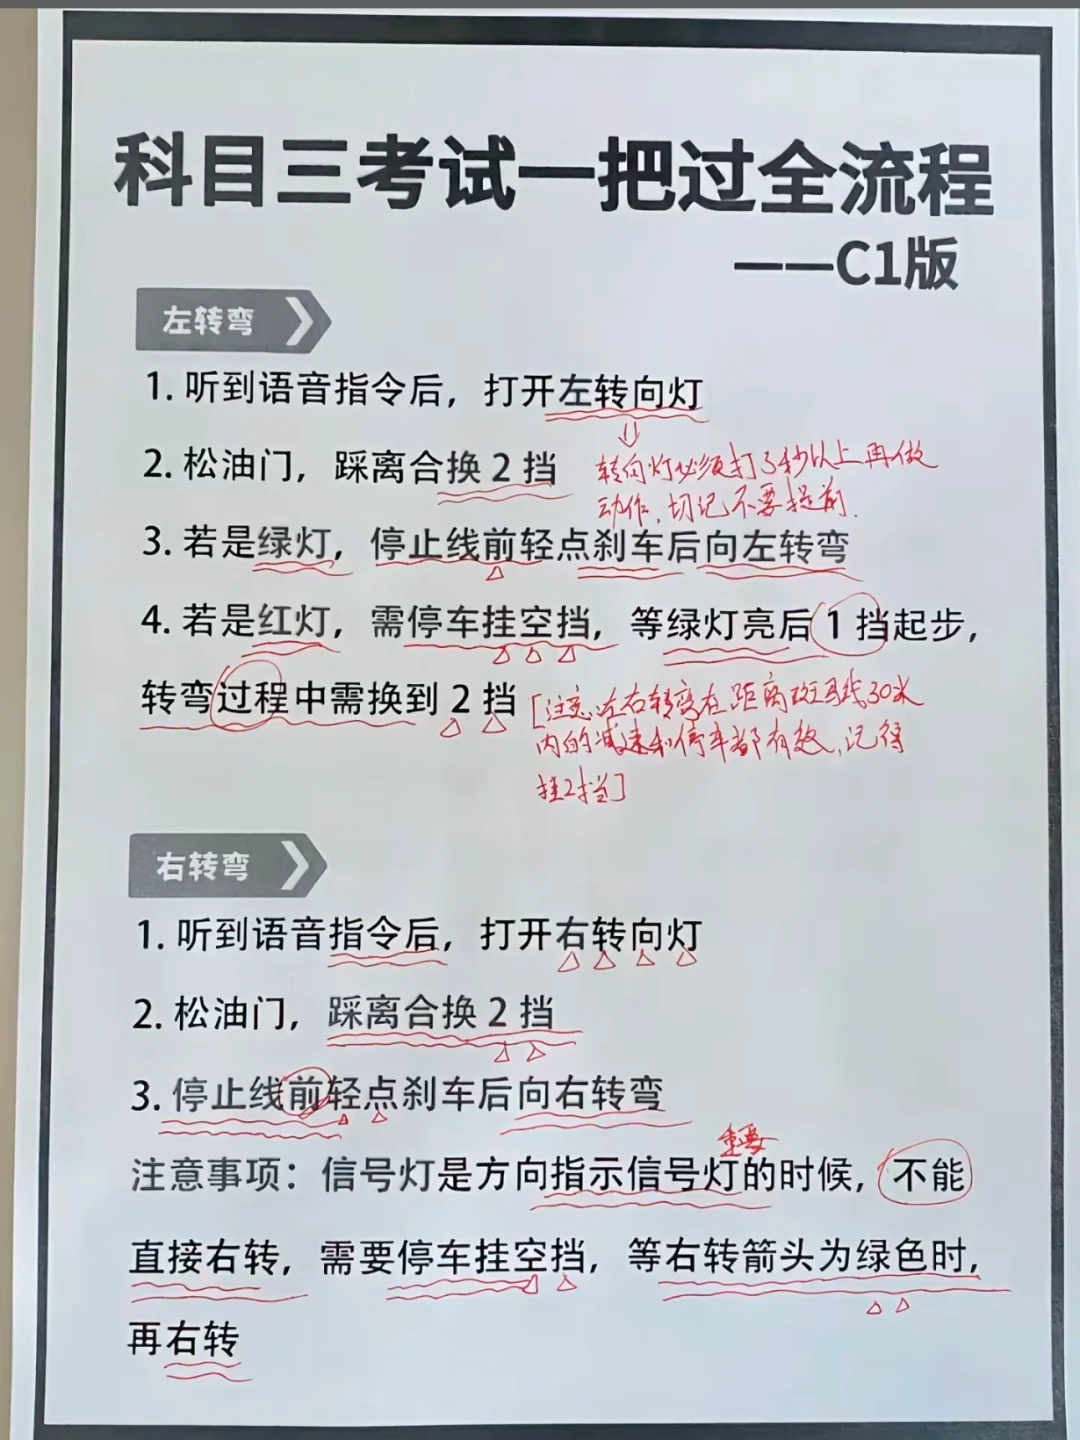 科目三考试一把过全流程
——C1版
左转弯
1. 听到语音指令后，打开左转向灯
2. 松油门，踩离合换 2 挡
转向灯必须打3秒以上再做
动作，切记不要提前.
3. 若是绿灯，停止线前轻点刹车后向左转弯
4. 若是红灯，需停车挂空挡，等绿灯亮后 1 挡起步，
转弯过程中需换到 2 挡
[注意:左右转弯在距离斑马线30米
内的减速和停车都有效,记得
挂2挡]
右转弯
1. 听到语音指令后，打开右转向灯
2. 松油门，踩离合换 2 挡
3. 停止线前轻点刹车后向右转弯
重要
注意事项：信号灯是方向指示信号灯的时候，不能
直接右转，需要停车挂空挡，等右转箭头为绿色时，
再右转